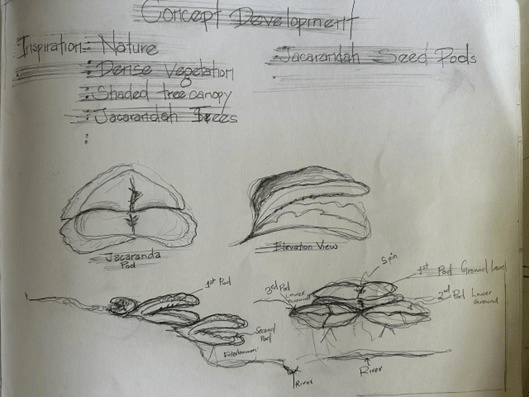 Concept Development
Inspiration:- Nature
:- Dense Vegetation
:- Shaded tree canopy
:- Jacarandah Trees
Jacarandah Seed Pods
Jacaranda
Pod
Elevation View
1st Pod
Second
Pod
River
Spin
3rd Pod
Lower
Ground
1st Pod Ground Level
2nd Pod Lower
Ground
River